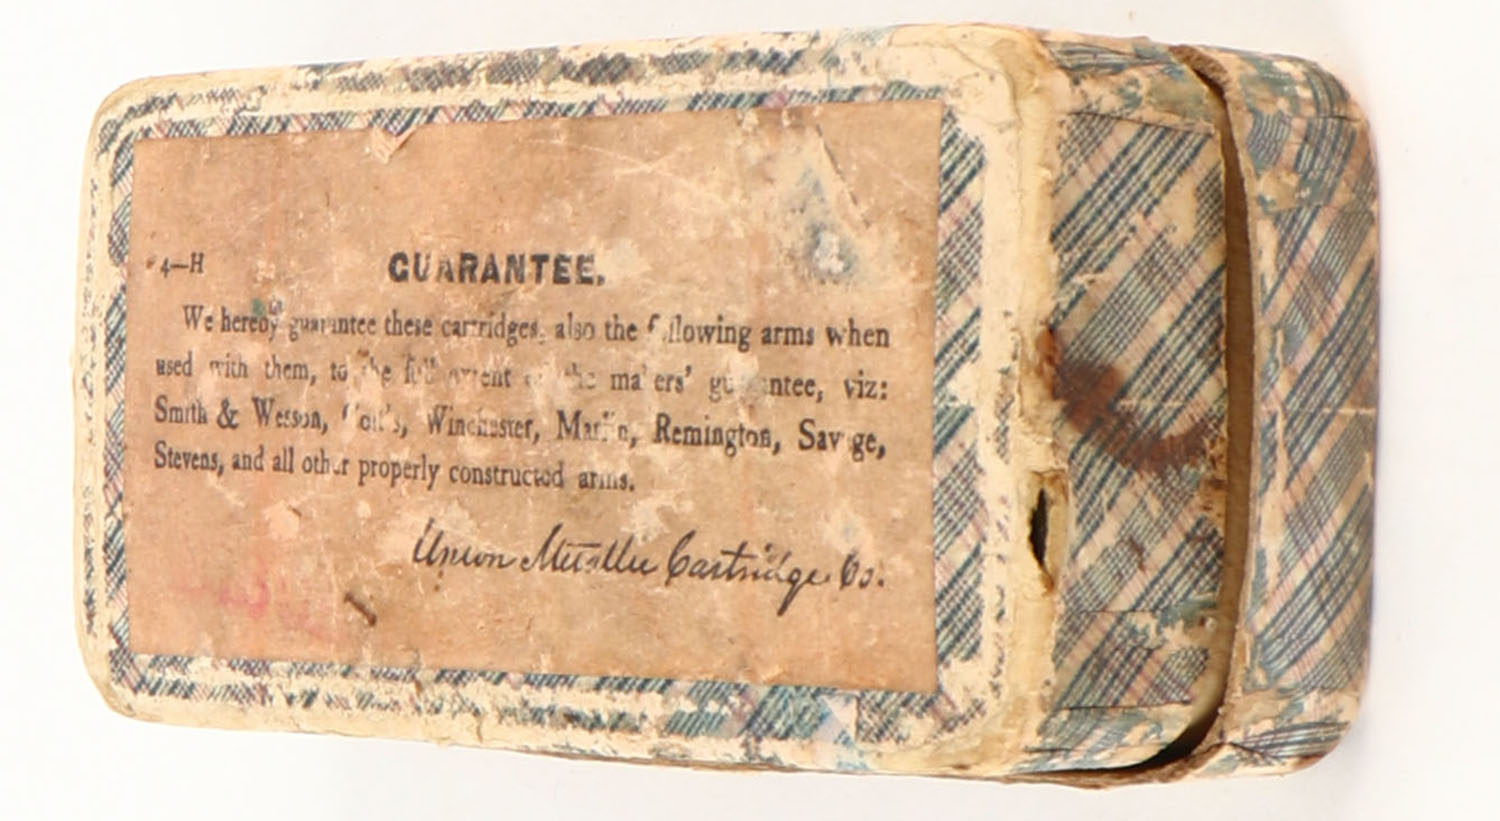 4—H
GUARANTEE.
We hereby guarantee these cartridges, also the following arms when
used with them, to the full extent of the makers' guarantee, viz:
Smith & Wesson, Colt's, Winchester, Marlin, Remington, Savage,
Stevens, and all other properly constructed arms.
Union Metallic Cartridge Co.